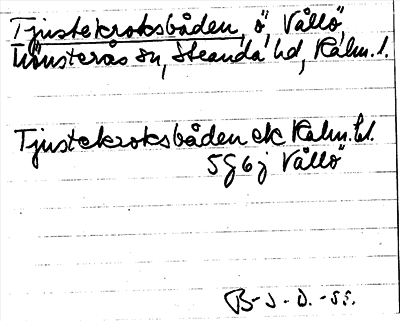 Tjustekroksbåden, ö, Vållö,
Mönsterås sn, Stranda hd, Kalm. l.
Tjustekroksbåden ek Kalm. bl.
5G6j Vållö
B-S-D.-55.